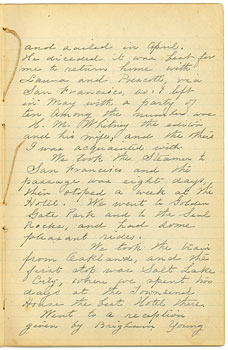 and sailed in April.
He dicided it was best for
me to return home with
Laura and Prescott, via
San Francisco, so I left
in May with a party of
ten Among the number was
H. M. Whitney the senior
and his wife, and the their
I was acquainted with
We took the Steamer to
San Francisco and the
passage was eight days,
then stoped a week at the
Hotel. We went to Golden
Gate Park and to the Seal
Rocks, and had some
pleasant rides.
We took the train
from Oakland, and the
first stop was Salt Lake
City, where we spent two
days at the Townsend
House the best Hotel there
Went to a reception
given by Brigham Young